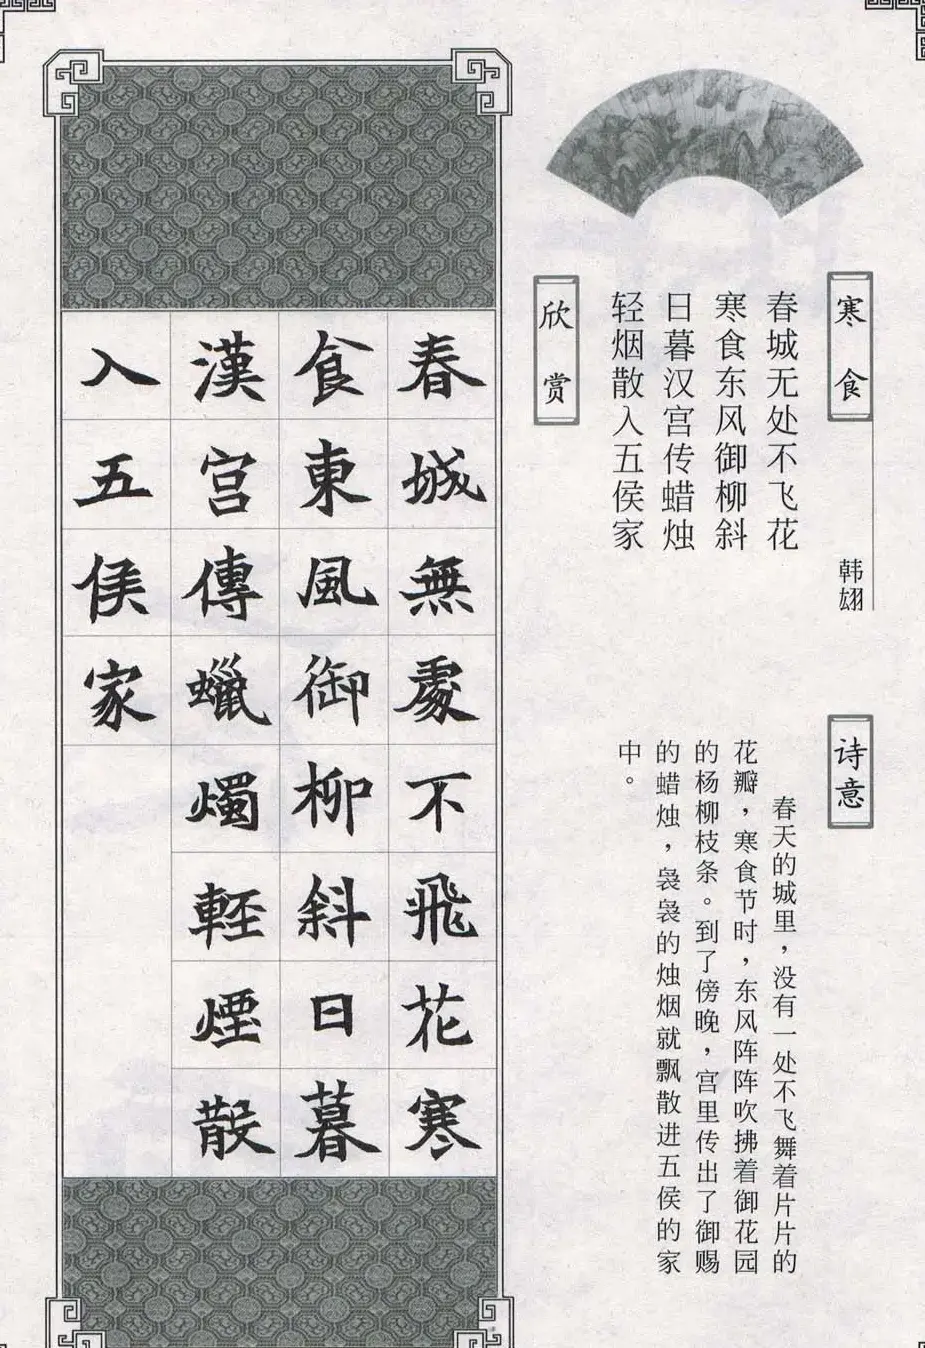 寒食
韩翃
春城无处不飞花
寒食东风御柳斜
日暮汉宫传蜡烛
轻烟散入五侯家
诗意
春天的城里，没有一处不飞舞着片片的
花瓣，寒食节时，东风阵阵吹拂着御花园
的杨柳枝条。到了傍晚，宫里传出了御赐
的蜡烛，袅袅的烛烟就飘散进五侯的家
中。
欣赏
春城無處不飛花寒
食東風御柳斜日暮
漢宮傳蠟燭輕煙散
入五侯家